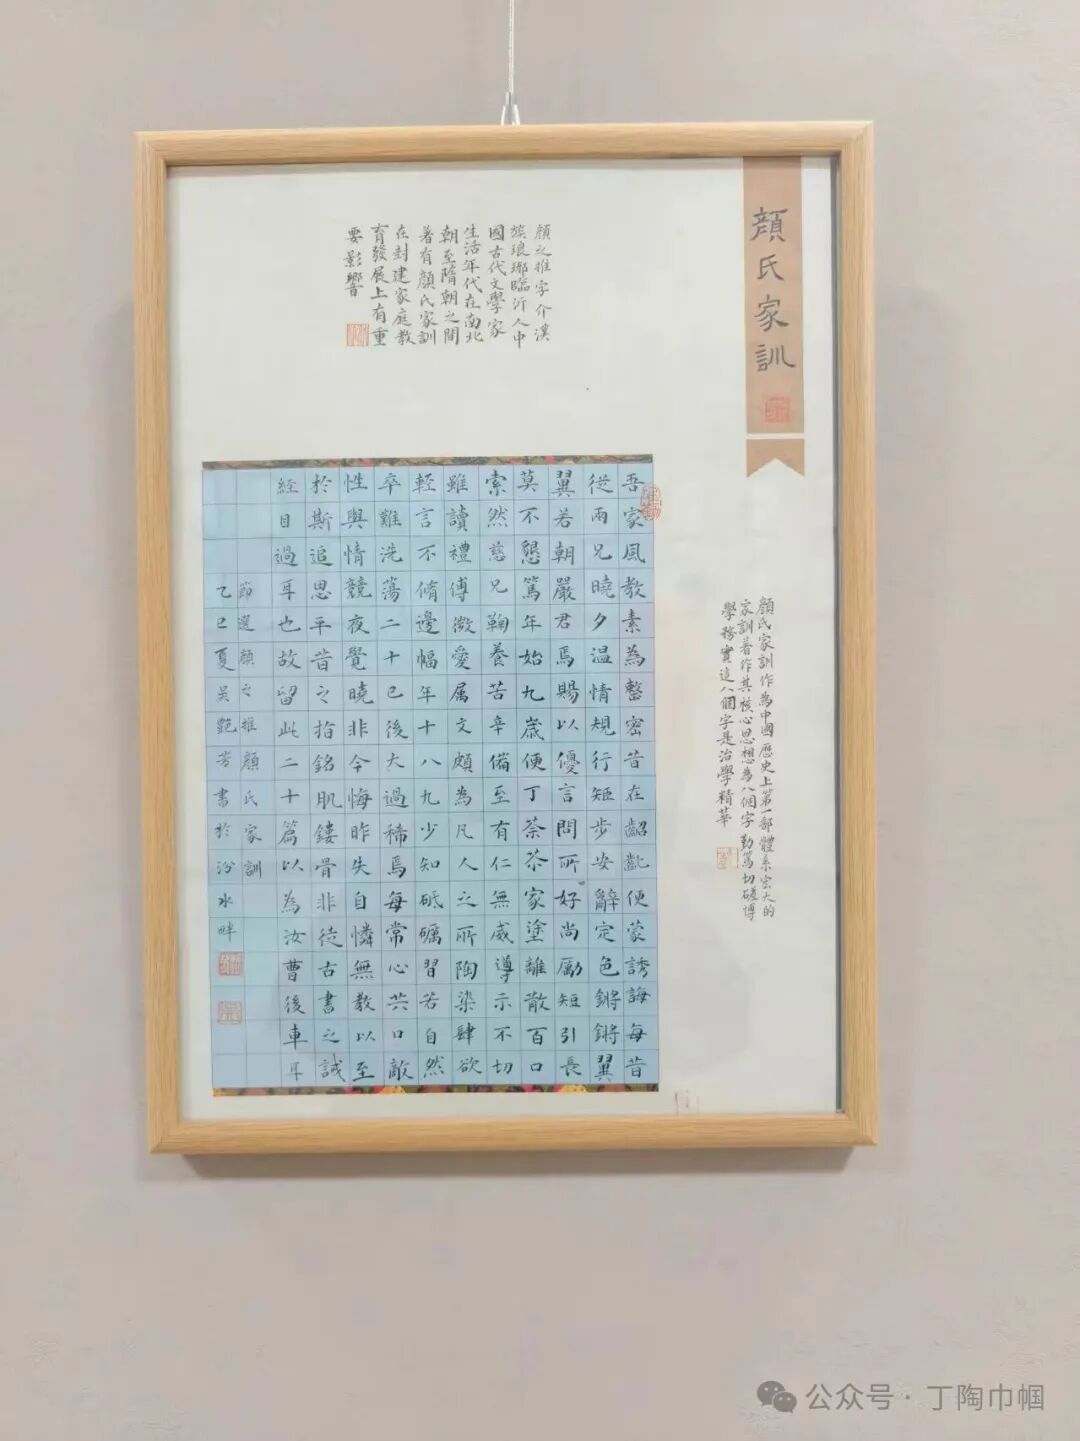 顏氏家訓
顏之推字介漢
族琅琊臨沂人中
國古代文學家
生活年代在南北
朝至隋朝之間
著有顏氏家訓
在封建家庭教
育發展上有重
要影響
顏氏家訓作為中國歷史上第一部體系宏大的
家訓著作其核心思想為八個字勤篤切磋博
學務實這八個字是治學精華
吾家風教素為整密昔在齠齔便蒙誘誨每昔
從兩兄曉夕溫情規行矩步安辭定色鏘鏘翼
翼若朝嚴君焉賜以優言問所好尚勵短引長
莫不懇篤年始九歲便丁荼荼家塗離散百口
索然慈兄鞠養苦辛備至有仁無威導示不切
雖讀禮傅微愛属文頗為凡人之所陶染肆欲
輕言不脩邊幅年十八九少知砥礪習若自然
卒難洗蕩二十已後大過稀焉每常心共口敵
性與情競夜覺曉非今悔昨失自憐無教以至
於斯追思平昔之指銘肌鏤骨非徒古書之誡
經目過耳也故留此二十篇以為汝曹後車耳
節選顏之推顏氏家訓
乙巳夏吳艷芳書於汾水畔
公众号·丁陶巾帼